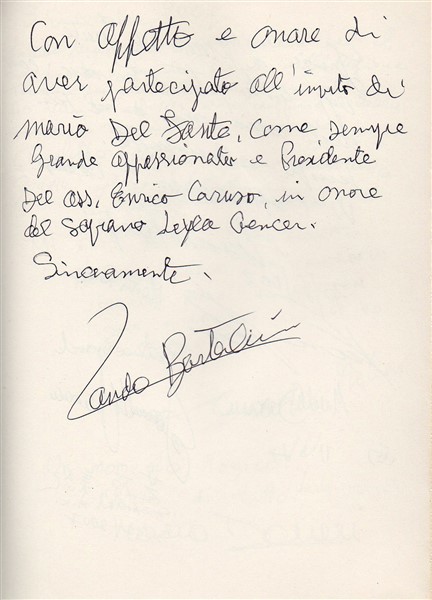 Con affetto e onore di
aver partecipato all'invito di
Mario Del Sante, come sempre
Grande appassionato e Presidente
Del ass. Enrico Caruso, in onore
del Soprano Leyla Gencer.
Sinceramente.
Lando Bartolini